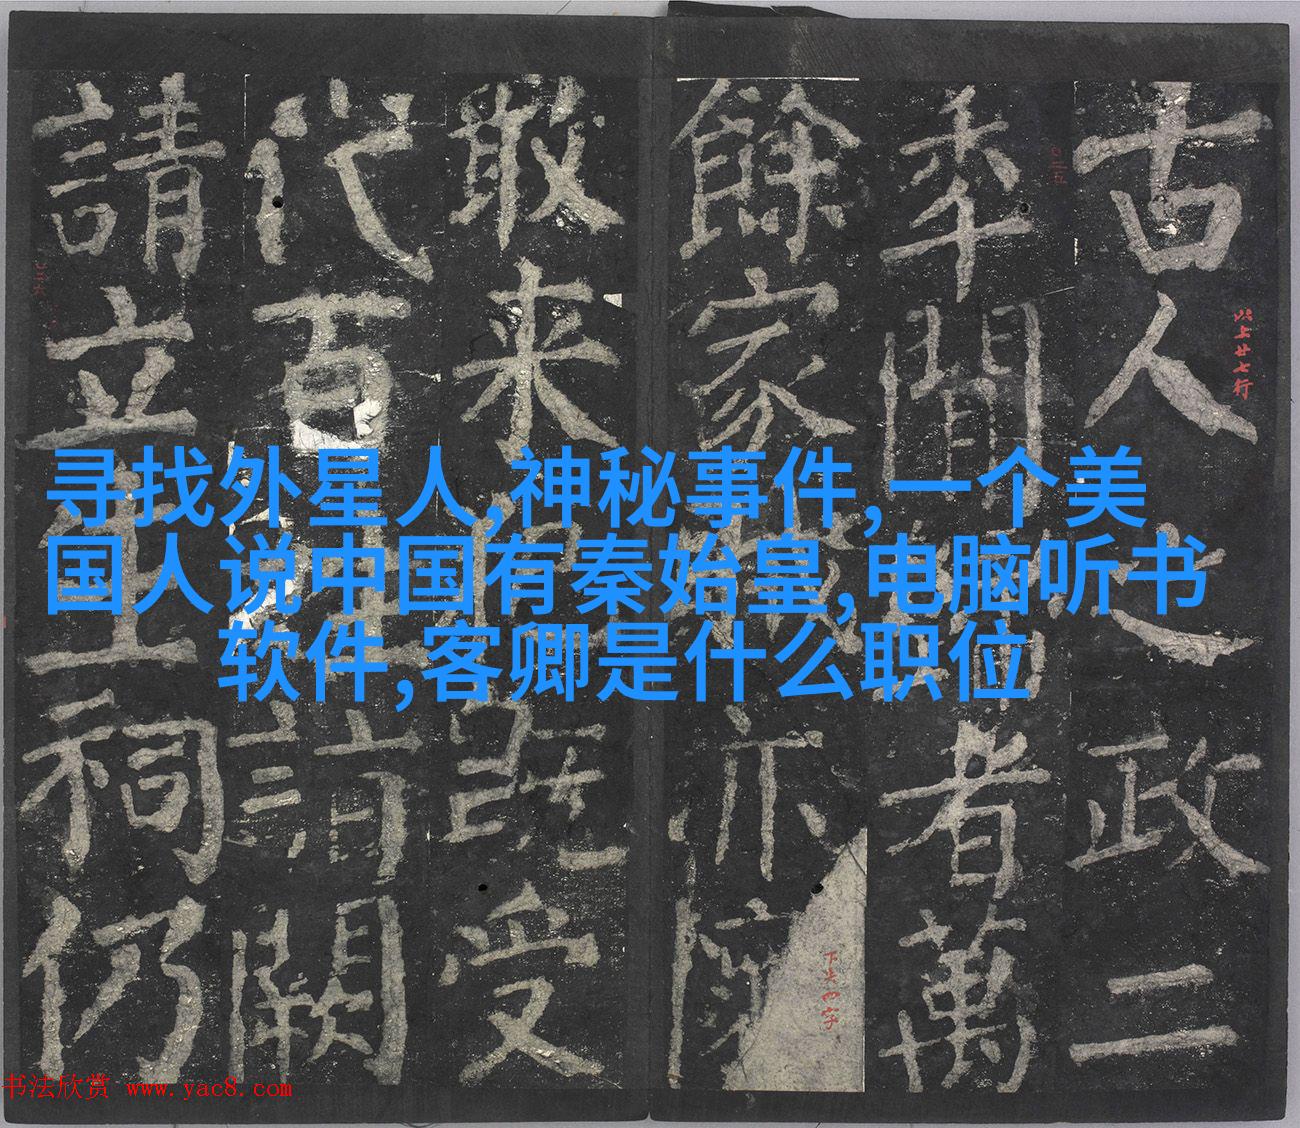 寻找外星人,神秘事件,一个美
国人说中国有秦始皇,电脑听书
软件,客卿是什么职位
古人之政二
年闻
者萬
餘家
亦
敢来
既受
代百
請闕
請立生祠仍
以上廿七行
下半四字
书法欣赏 www.yac8.com